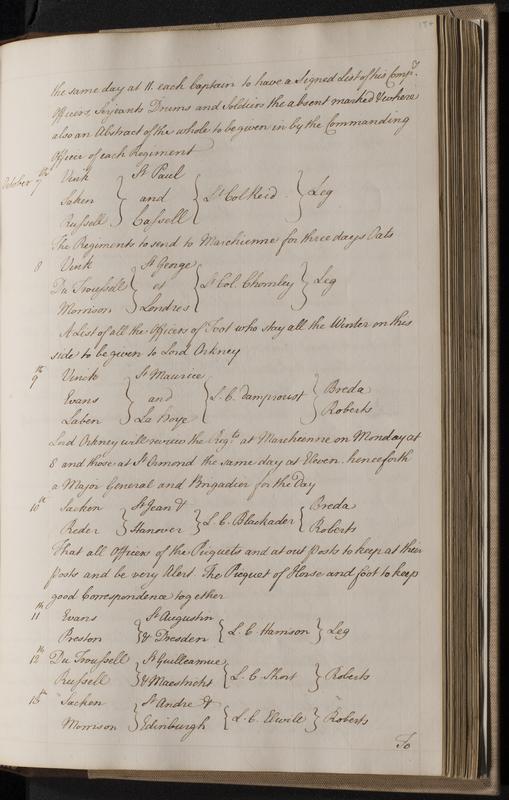 the same day at 11. each Captain to have a Signed List of his Compy.
Officers, Serjeants Drums and Soldiers the absent marked & where
also an Abstract of the whole to be given in by the Commanding
Officer of each Regiment
October 7th Vink St Paul
Saken and Lt Col Reid Leg
Russell Cassell
The Regiments to send to Marchienne for three days Oats
8 Vink St George
Du Troussell et Lt Col. Chomley Leg
Morrison Londres
A List of all the Officers of Foot who stay all the Winter on this
side to be given to Lord Orkney
9th Vinck St Maurice Breda
Evans and L. C. Damproust
Laben La Haye Roberts
Lord Orkney will review the Regts at Marchienne on Monday at
8 and those at St Ormond the same day at Eleven. henceforth
a Major General and Brigadier for the Day
10th Sacken St Jean & Breda
Reder Hanover L. C. Blackader Roberts
That all Officers of the Picquets and at out Posts to keep at their
Posts and be very Alert. The Picquet of Horse and foot to keep
good Correspondence together
11th Evans St Augustin
Preston & Dresden L. C. Harrison Leg
12th Du Troussell St Guilleaumue
Russell & Maestricht L. C. Short Roberts
13th Sacken St Andre &
Morrison Edinburgh L. C. Elwill Roberts
To